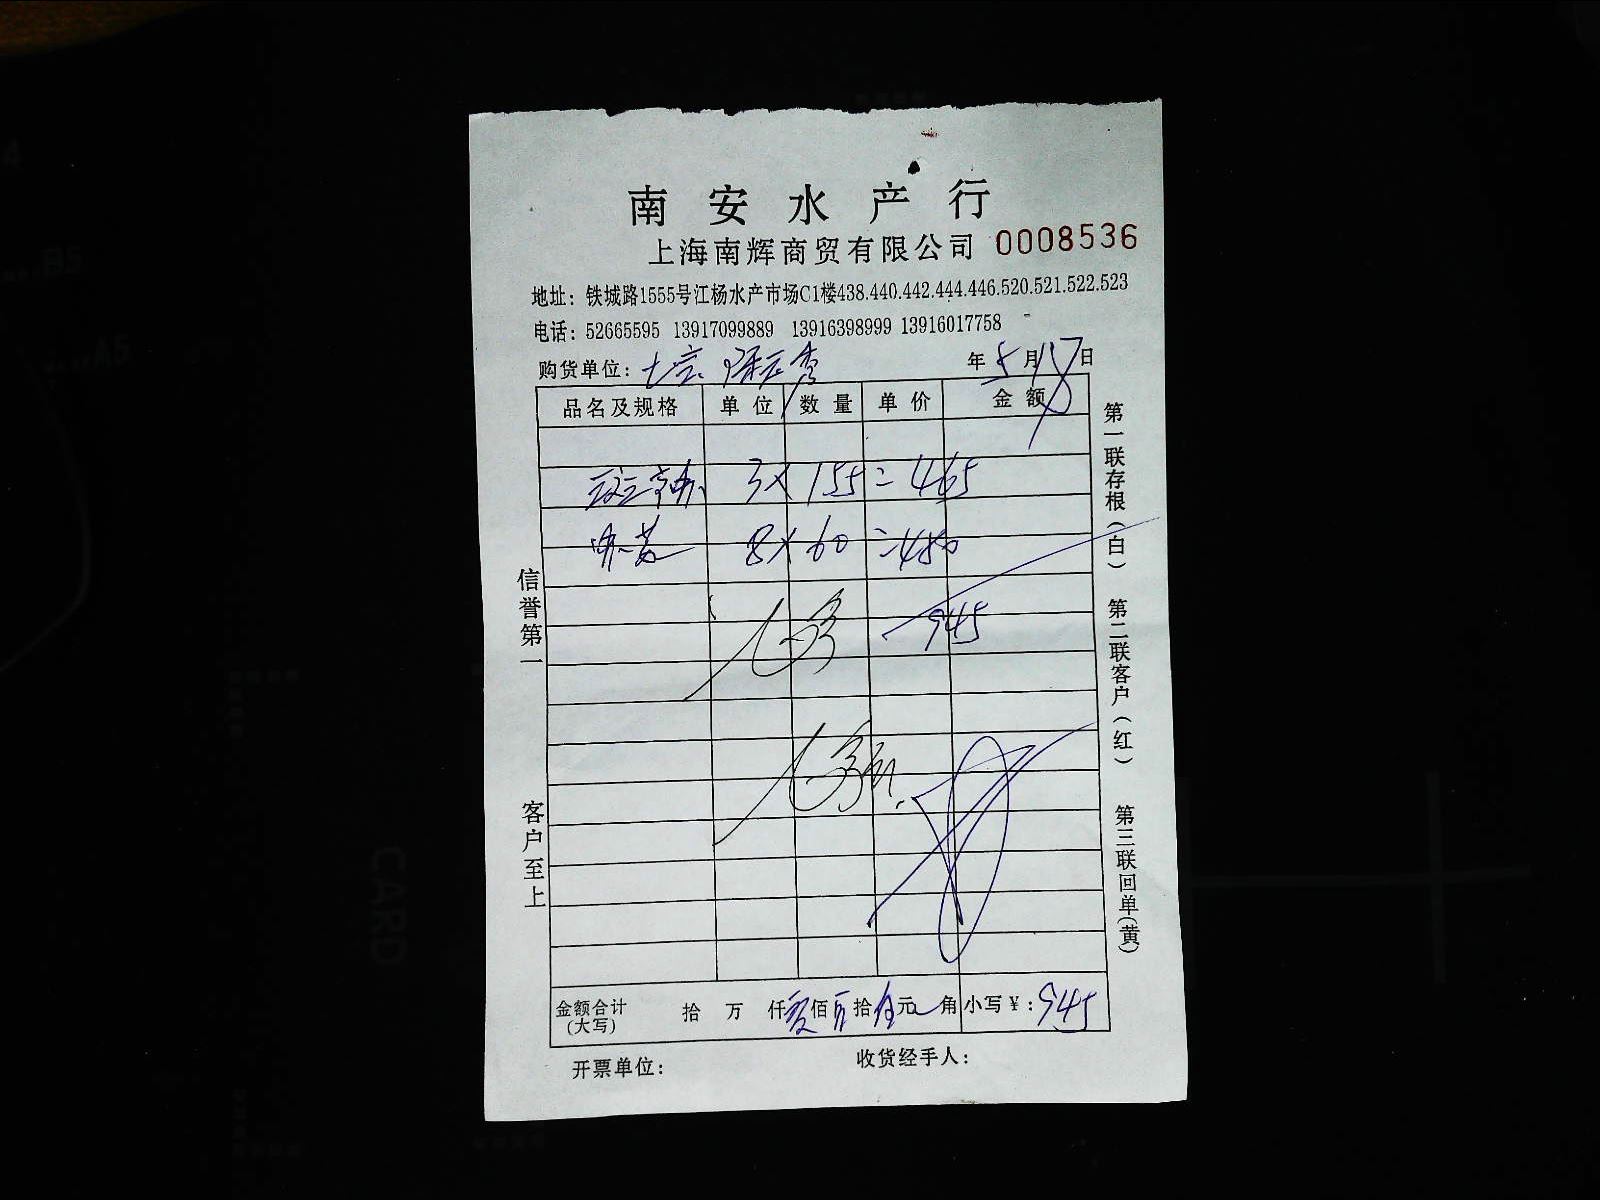 南安水产行
上海南辉商贸有限公司 0008536
地址：铁城路1555号江杨水产市场C1楼438.440.442.444.446.520.521.522.523
电话：52665595 13917099889 13916398999 13916017758
购货单位： 年5月17日
品名及规格 单位 数量 单价 金额
3×155=465
8×60=480
945
信誉第一
客户至上
第一联存根（白）
第二联客户（红）
第三联回单（黄）
金额合计（大写） 拾 万 仟 佰 拾 元 角 小写￥：945
开票单位： 收货经手人：